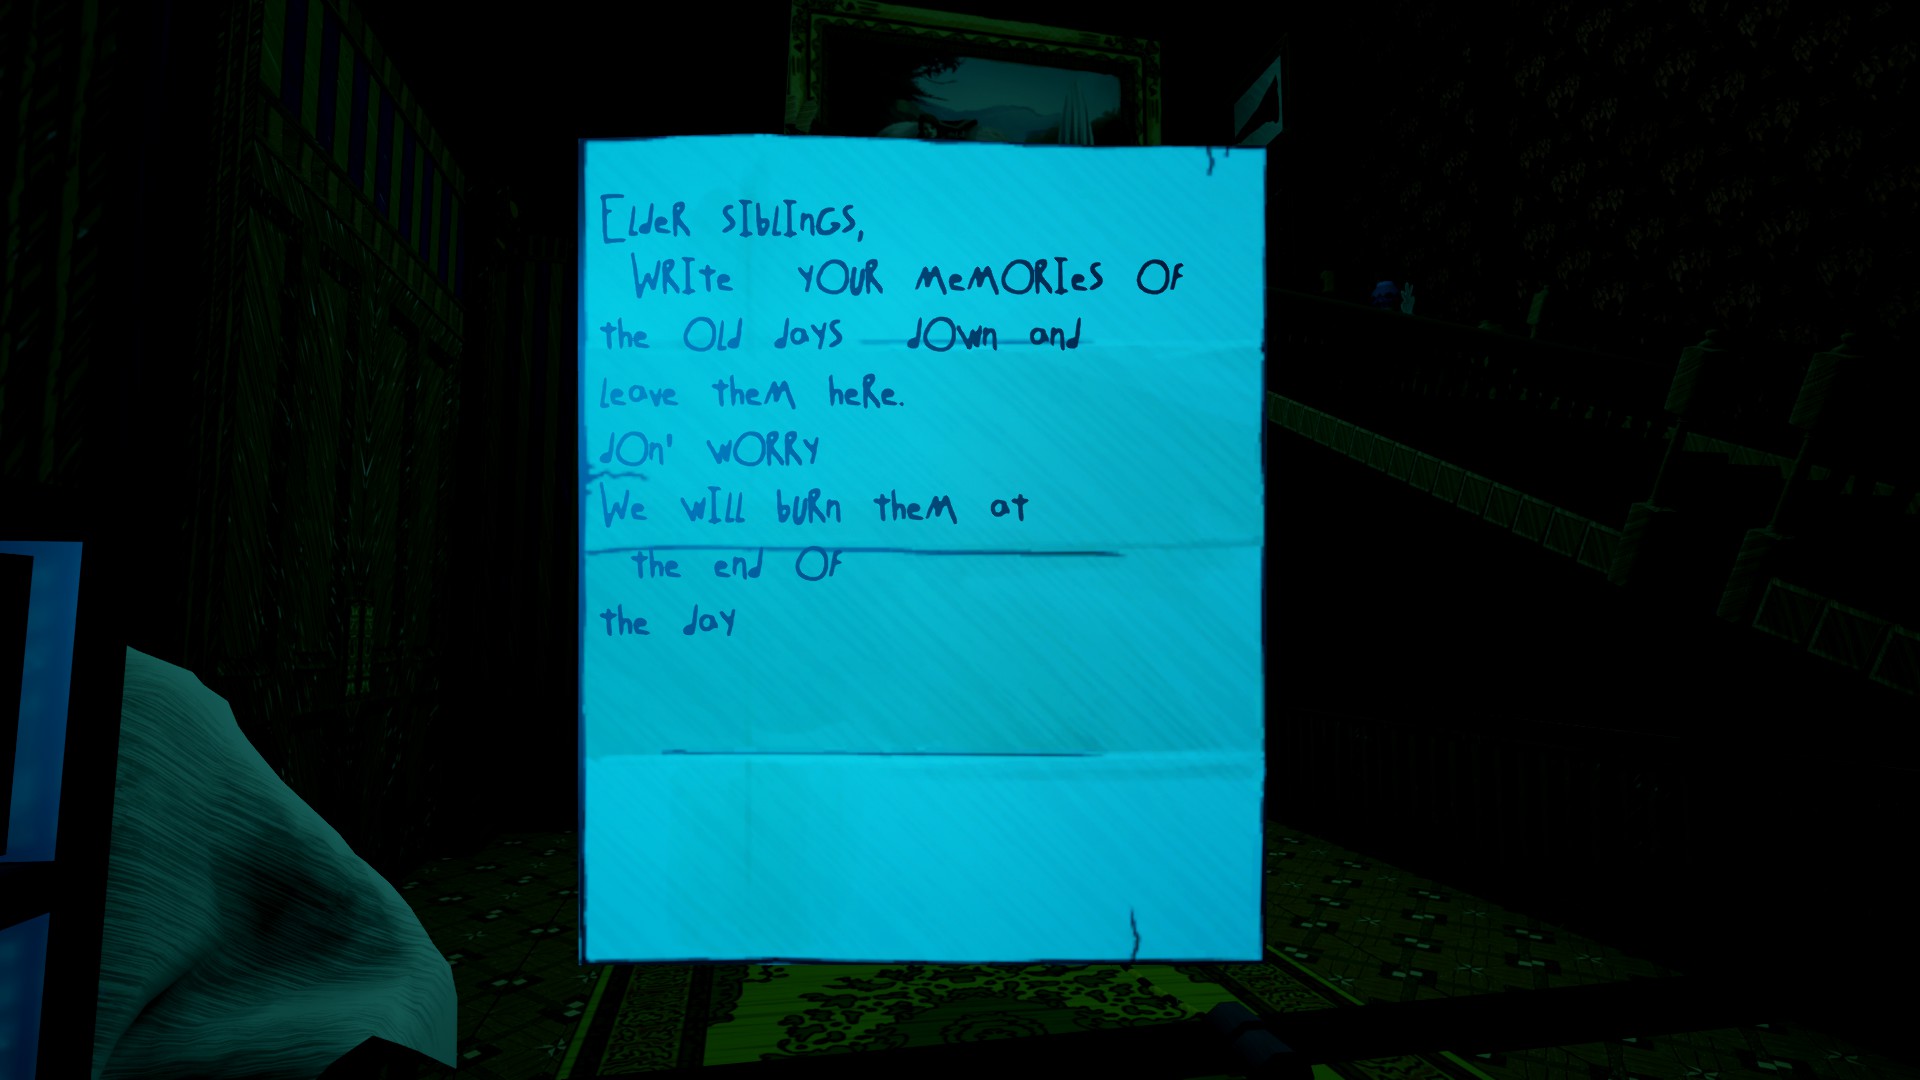 Elder siblings,
Write your memories of
the old days down and
leave them here.
don' worry
We will burn them at
the end of
the day